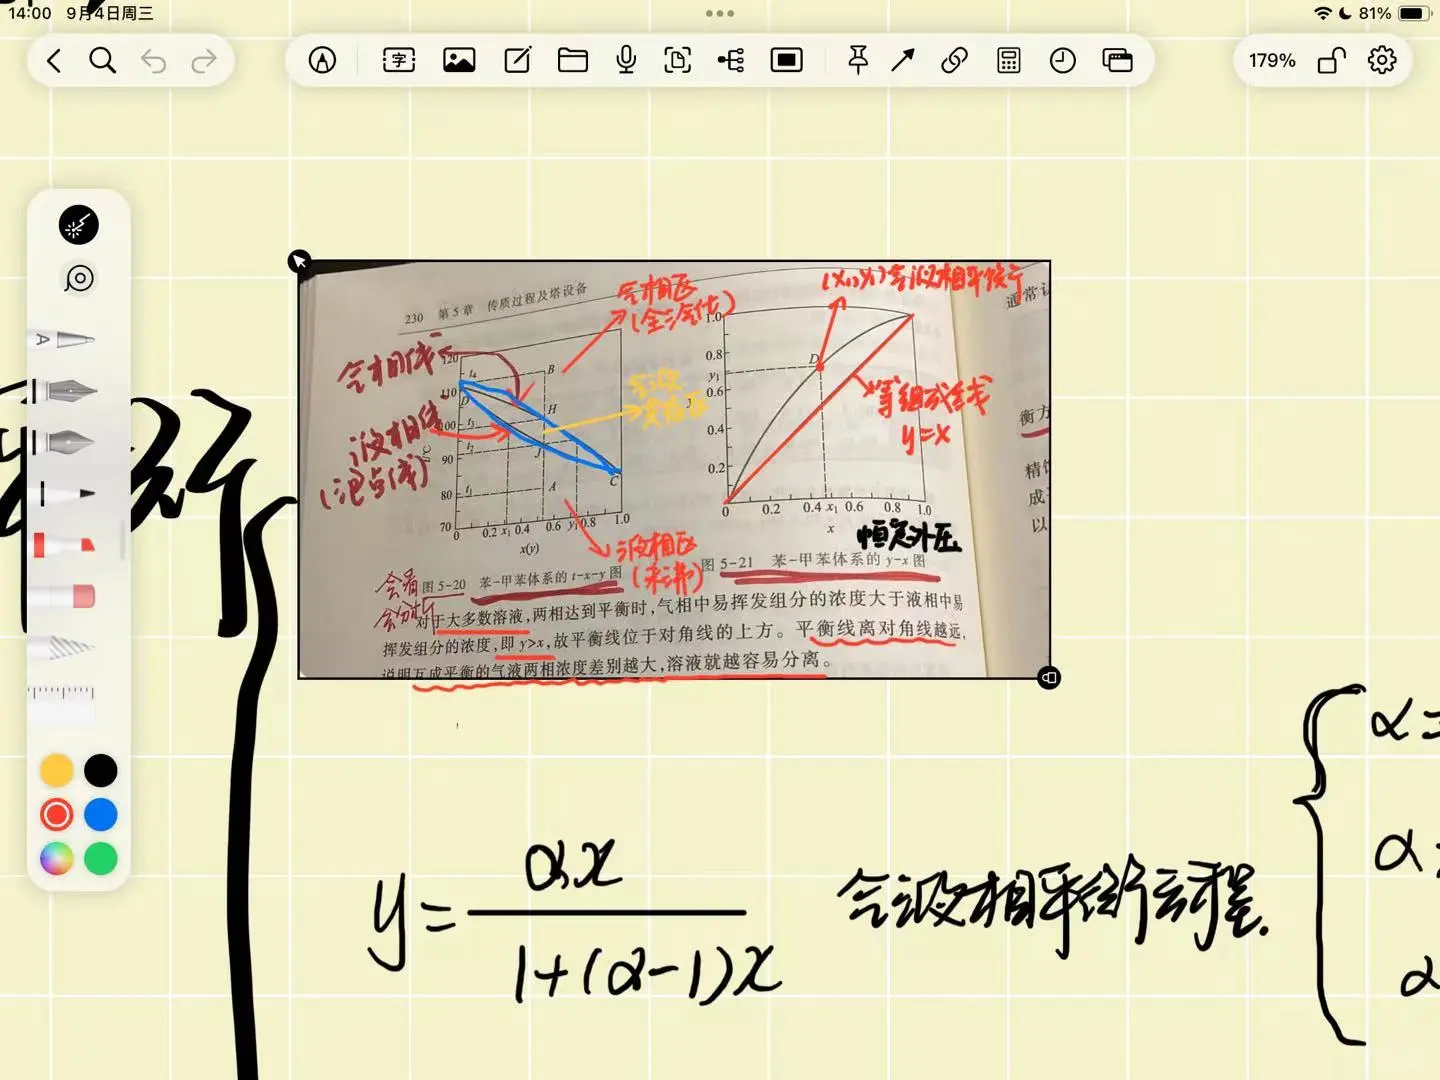 14:00 9月4日周三
81%
字
179%
A
230 第5章 传质过程及塔设备
气相区
(全部汽化)
气相线
液相线
(泡点线)
气液
共存区
液相区
(未沸)
120
110
100
90
80
70
t/℃
t₄
t₃
t₂
t₁
B
D
H
J
A
C
0 0.2 x₁ 0.4 0.6 y₁ 0.8 1.0
x(y)
(x₁,y₁)气液相平衡
1.0
0.8
y₁
0.6
0.4
0.2
D
等组成线
y=x
0 0.2 0.4 x₁ 0.6 0.8 1.0
x
恒定外压
会看
会分析
图5-20 苯-甲苯体系的t-x-y图
图5-21 苯-甲苯体系的y-x图
对于大多数溶液,两相达到平衡时,气相中易挥发组分的浓度大于液相中易
挥发组分的浓度,即y>x,故平衡线位于对角线的上方。平衡线离对角线越远,
说明互成平衡的气液两相浓度差别越大,溶液就越容易分离。
通常认
衡方
精馏
成
以
y=αx/1+(α-1)x
气液相平衡方程.
α=
α=
α